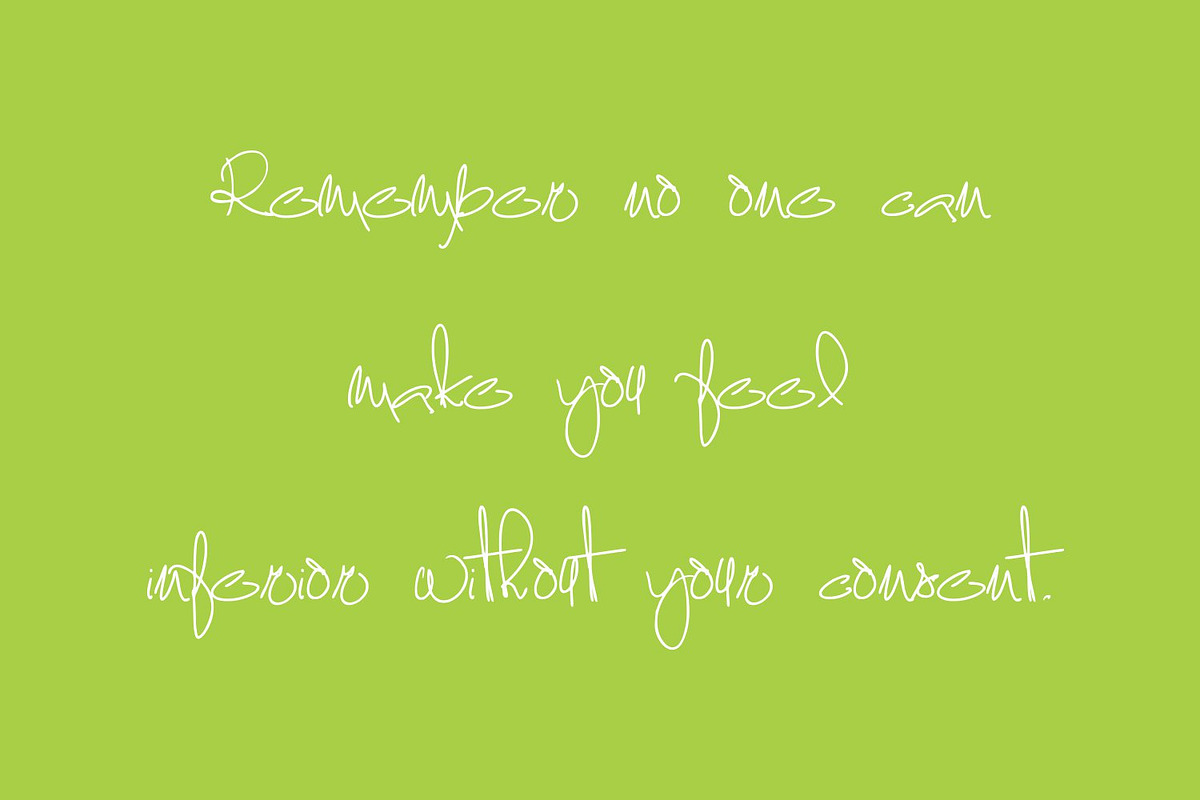 Remember no one can
make you feel
inferior without your consent.